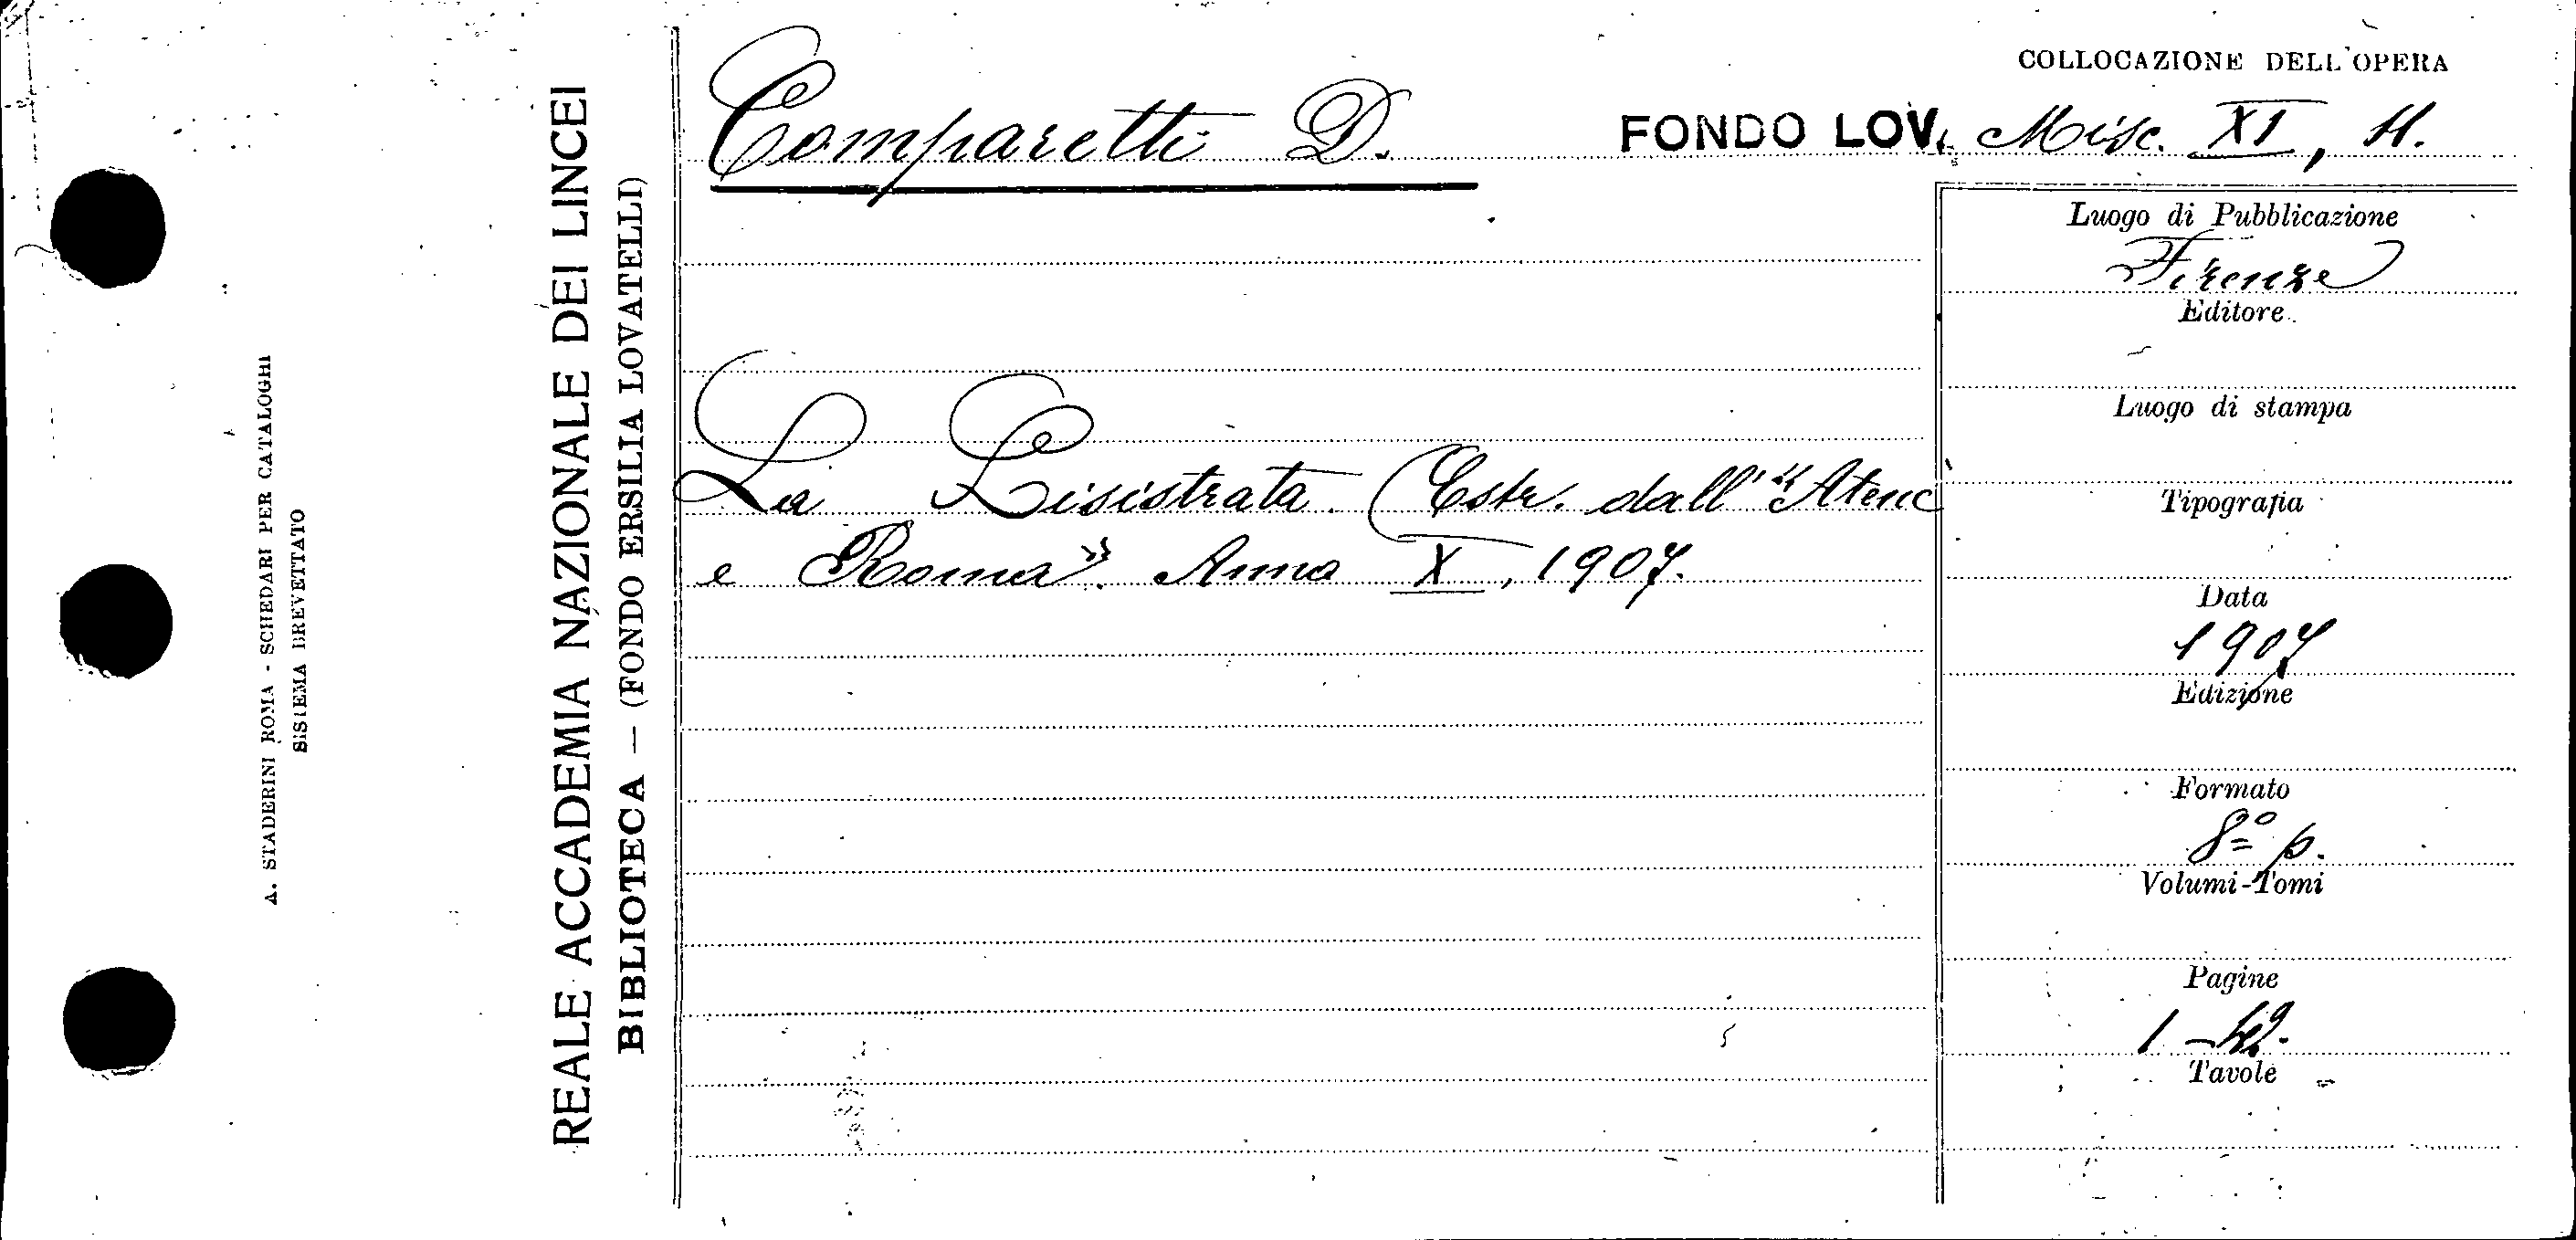 COLLOCAZIONE DELL'OPERA
Comparetti D.
FONDO LOV. Misc. XI, H.
La Lisistrata. (Estr. dall' "Atene
e Roma". Anno X, 1907.
Luogo di Pubblicazione
Firenze
Editore
Luogo di stampa
Tipografia
Data
1907
Edizione
Formato
8º p.
Volumi-Tomi
Pagine
Tavole
REALE ACCADEMIA NAZIONALE DEI LINCEI
BIBLIOTECA — (FONDO ERSILIA LOVATELLI)
A. STADERINI ROMA - SCHEDARI PER CATALOGHI
SISTEMA BREVETTATO